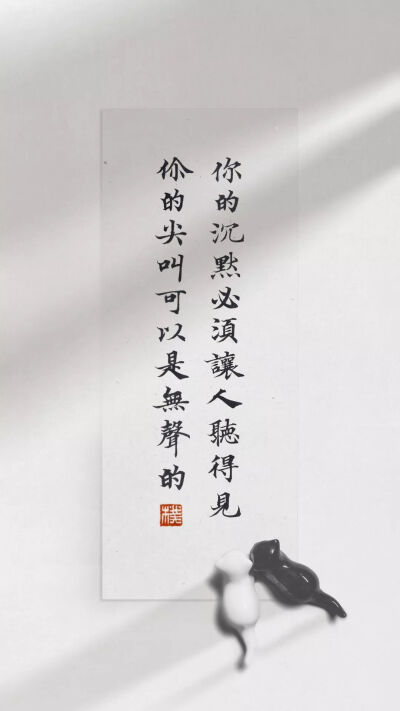 你的沉默必須讓人聽得見
你的尖叫可以是無聲的